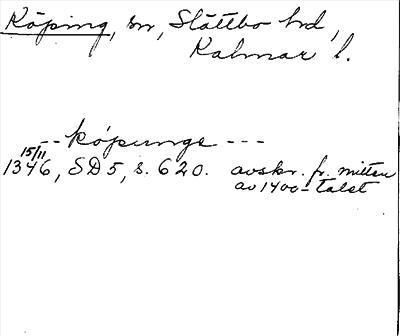 Köping, sn, Slättbo hd,
Kalmar l.
-- köpunge ---
15/11
1346, SD 5, s. 620. avskr. fr. mitten
av 1400-talet